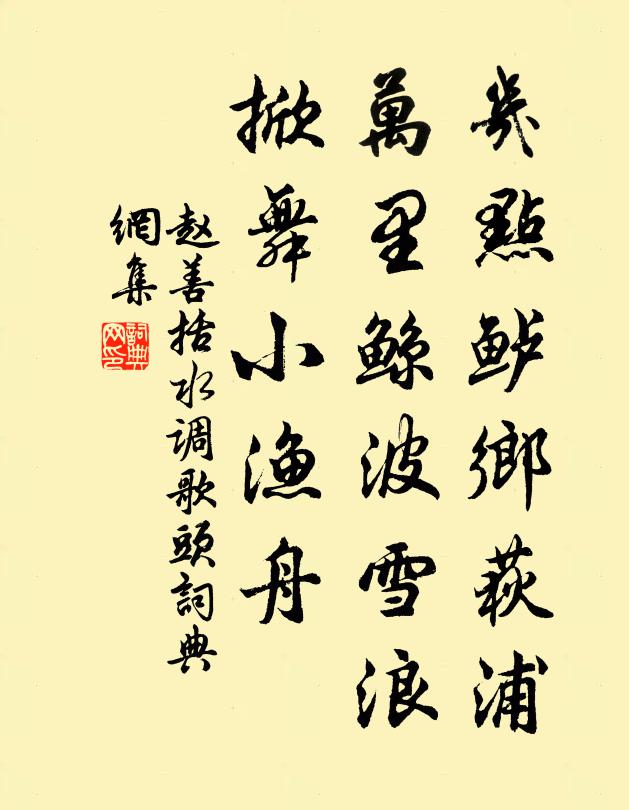 幾點鲈鄉荻浦
萬里鲸波雪浪
掀舞小渔舟
赵善括水调歌頭詞典
網集
詞典网印